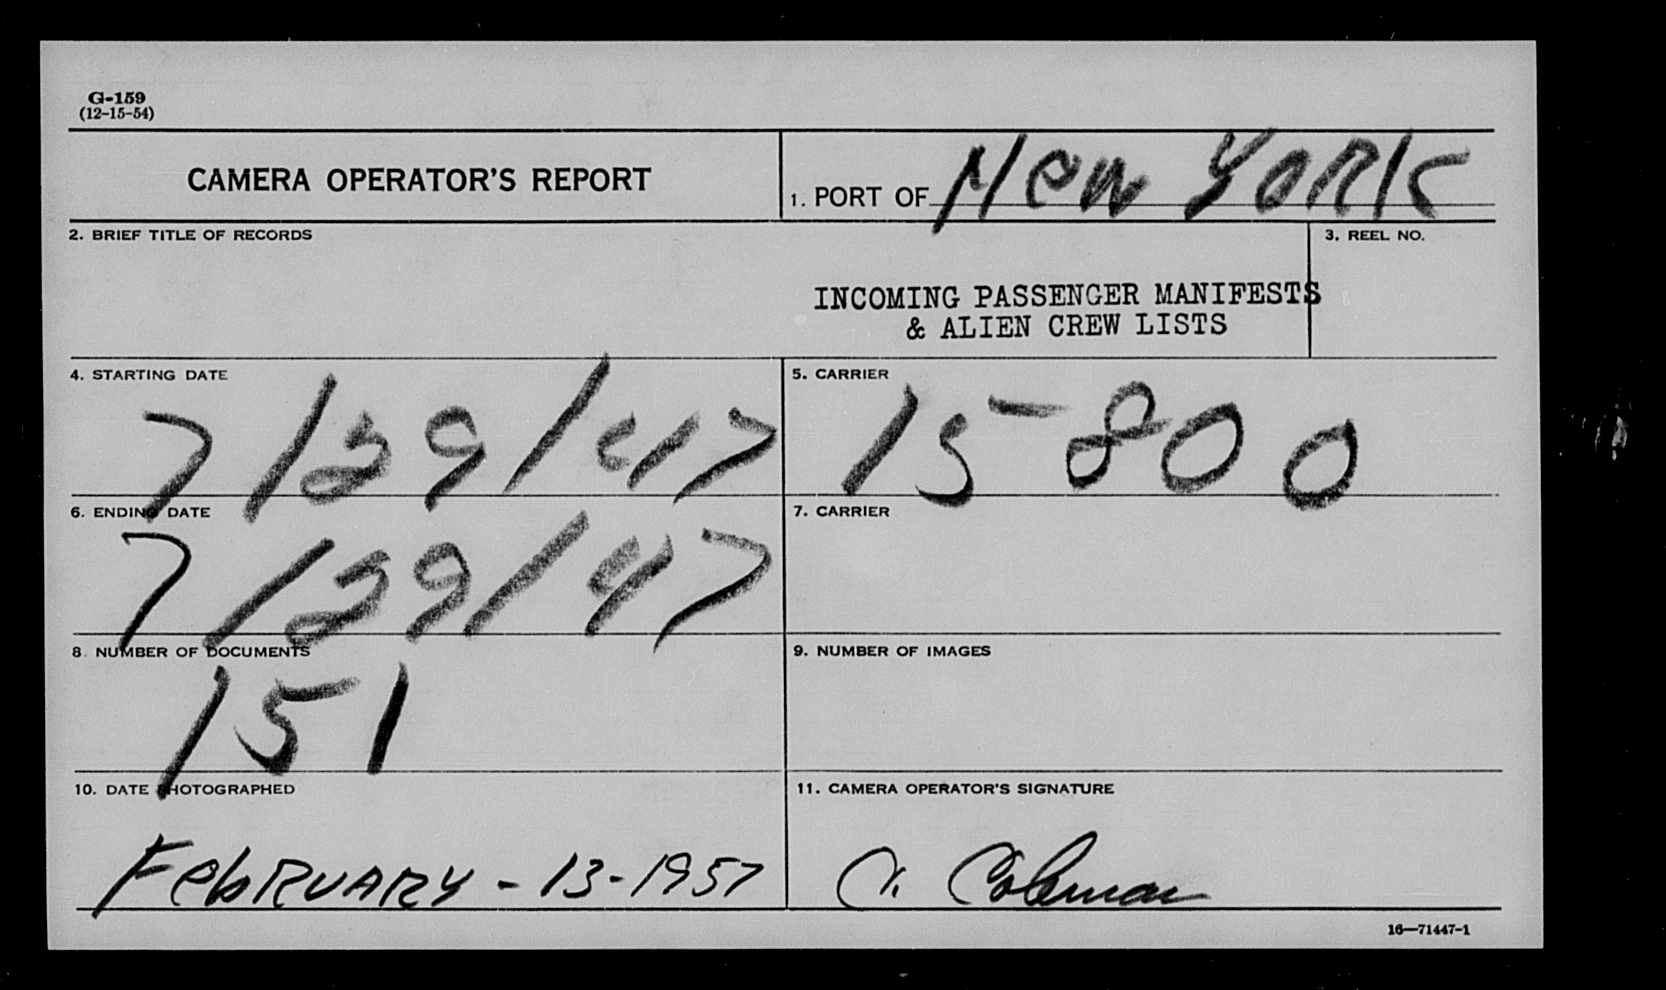 G-159
(12-15-54)
CAMERA OPERATOR'S REPORT
1. PORT OF New York
2. BRIEF TITLE OF RECORDS
3. REEL NO.
INCOMING PASSENGER MANIFESTS
& ALIEN CREW LISTS
4. STARTING DATE
7/29/47
5. CARRIER
15800
6. ENDING DATE
7/29/47
7. CARRIER
8. NUMBER OF DOCUMENTS
151
9. NUMBER OF IMAGES
10. DATE PHOTOGRAPHED
FebRUARY - 13 - 1957
11. CAMERA OPERATOR'S SIGNATURE
Coleman
16—71447-1